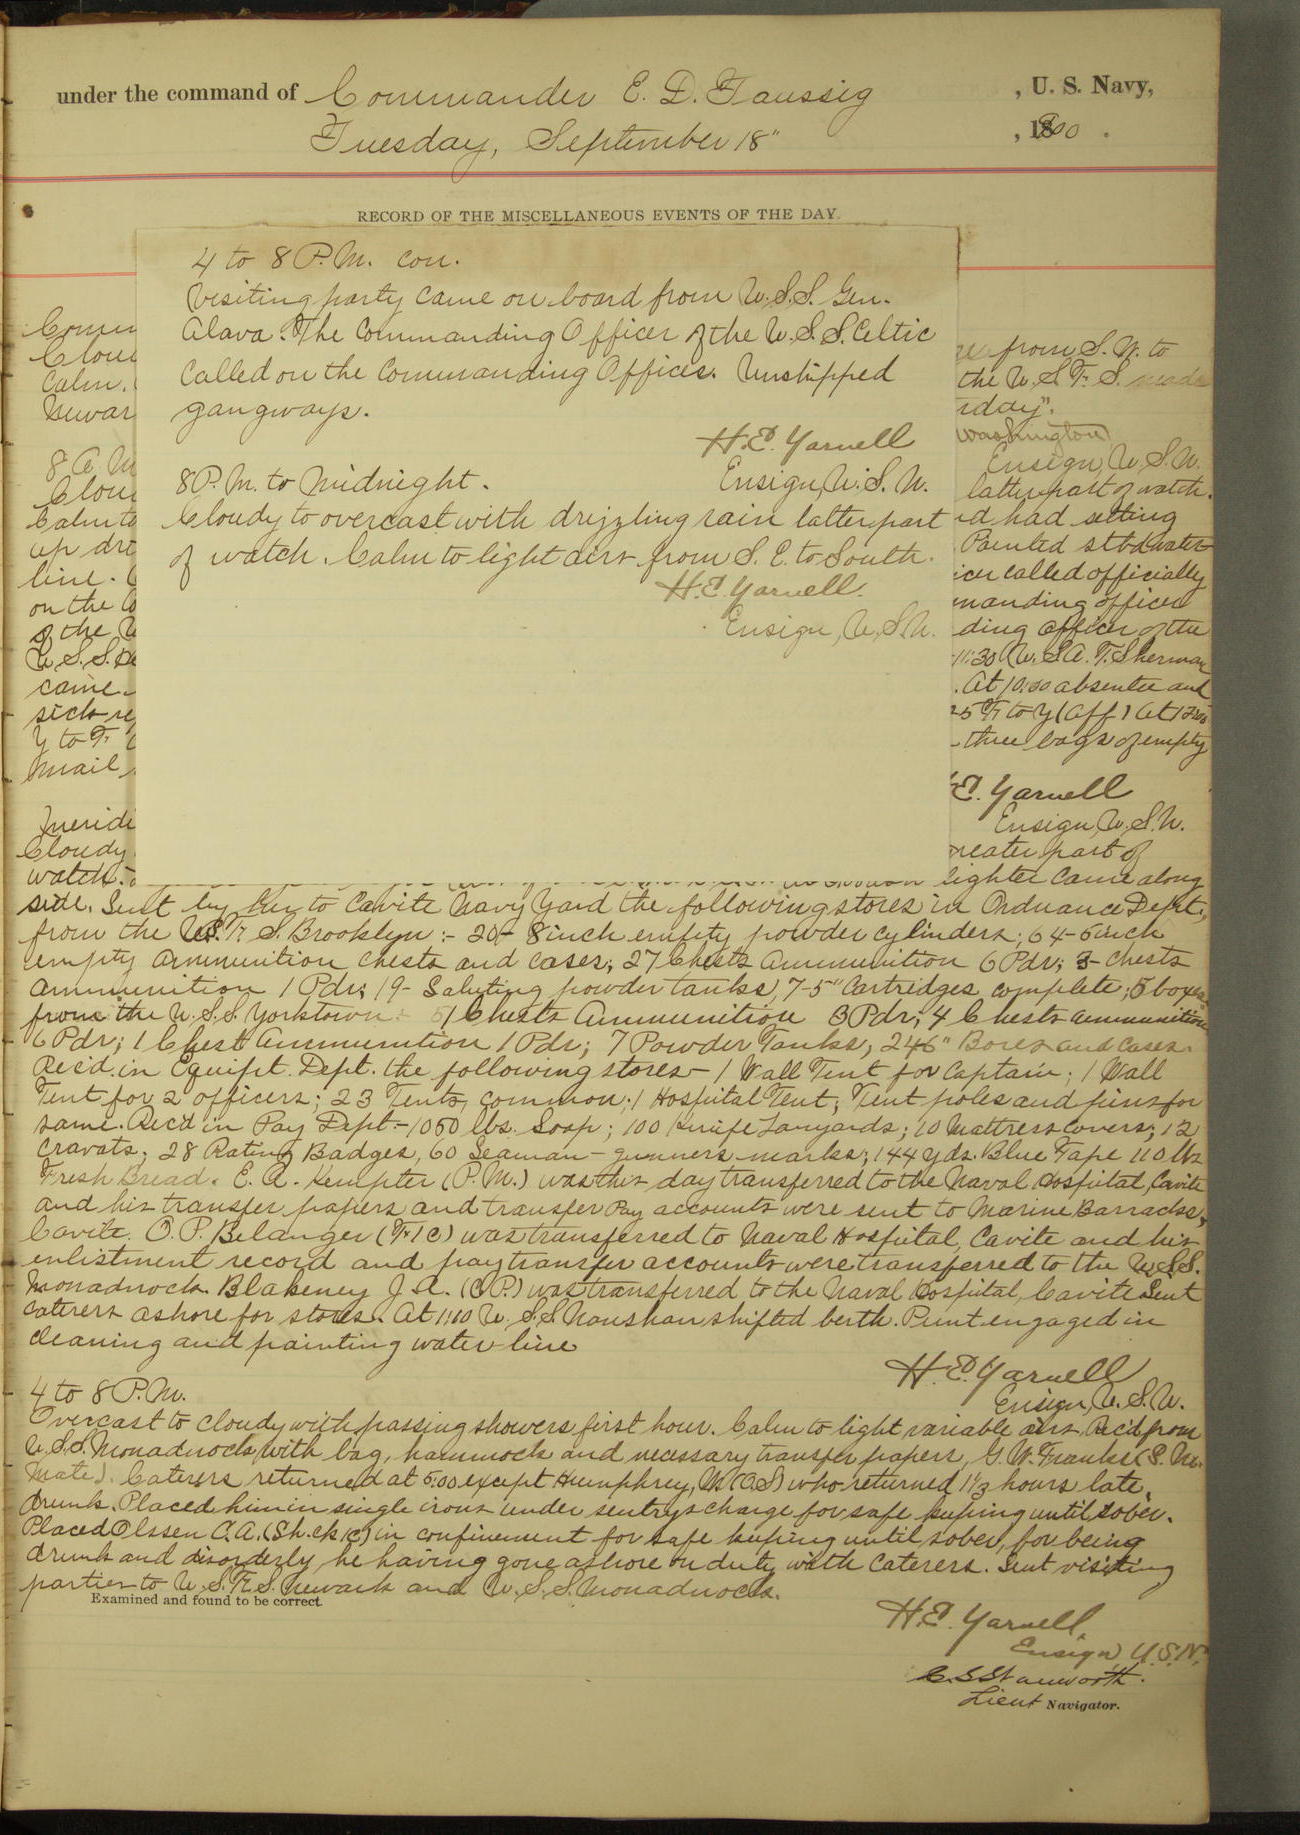 under the command of Commander E. D. Taussig , U. S. Navy,
Tuesday, September 18" , 1900 .
RECORD OF THE MISCELLANEOUS EVENTS OF THE DAY.
4 to 8 P.M. con.
Visiting party came on board from U.S.S. Gen.
Alava. The Commanding Officer of the U.S.S. Celtic
called on the Commanding Officer. Unshipped
gangways.
H.E. Yarnell
Ensign, U.S.N.
8 P.M. to Midnight.
Cloudy to overcast with drizzling rain latter part
of watch. Calm to light airs from S.E. to South.
H.E. Yarnell.
Ensign, U.S.N.
Cloud
Calm.
Newar
8 A M
Cloud
Calm to
up
line.
on the
of the
U.S.S.
came
sick
Y to Fr
Mail
Meridi
Cloudy
watch.
from S.W. to
the U.S.F.S. made
day".
Washington
Ensign, U.S.N.
latter part of watch.
had setting
Painted stbd water
called officially
manding officer
ding officer of the
11:30 U.S.A.T. Sherman
. At 10:00 absentee and
to Y (aff) At
three bags of empty
E. Yarnell
Ensign, U.S.N.
greater part of
lighter came along
side. Sent by her to Cavite Navy Yard the following stores in Ordnance Dept.,
from the U.S.F.S. Brooklyn:- 20- 8 inch empty powder cylinders; 64- 6 inch
empty ammunition chests and cases; 27 Chests ammunition 6 Pdr; 3- chests
ammunition 1 Pdr; 19- Saluting powder tanks, 7-5" Cartridges complete; 5 boxes
from the U.S.S. Yorktown 51 Chests Ammunition 3 Pdr; 4 Chests ammunition
6 Pdr; 1 Chest Ammunition 1 Pdr; 7 Powder Tanks, 24 6" Boxes and Cases.
Rec'd. in Equipt. Dept. the following stores- 1 Wall Tent for Captain; 1 Wall
Tent for 2 officers; 23 Tents, common; 1 Hospital Tent; Tent poles and pins for
same. Rec'd in Pay Dept.- 1050 lbs. Soap; 100 Knife Lanyards; 10 Mattress covers; 12
Cravats; 28 Rating Badges, 60 Seaman-gunners marks; 144 yds. Blue Tape 110 lbs
Fresh Bread. E. A. Kempter (P.M.) was this day transferred to the Naval Hospital, Cavite
and his transfer papers and transfer Pay accounts were sent to Marine Barracks,
Cavite. O.P. Belanger (F1C) was transferred to Naval Hospital, Cavite and his
enlistment record and pay transfer accounts were transferred to the U.S.S.
Monadnock. Blakeney J.A. (C.P.) was transferred to the Naval Hospital, Cavite Sent
caterers ashore for stores. At 1:10 U.S.S. Nanshan shifted berth. Punt engaged in
cleaning and painting water-line
H.E. Yarnell
Ensign, U.S.N.
4 to 8 P.M.
Overcast to cloudy with passing showers first hour. Calm to light variable airs Rec'd from
U.S.S. Monadnock with bag, hammock and necessary transfer papers, G.W. Franks (S.
Mate). Caterers returned at 5:00 except Humphrey, M (O.S) who returned 1 1/3 hours late,
drunk. Placed him in single irons under sentrys charge for safe keeping until sober.
Placed Olssen A.A. (Sh.ck 1c) in confinement for safe keeping until sober, for being
drunk and disorderly, he having gone ashore on duty with caterers. Sent visiting
parties to U.S.F.S. Newark and U.S.S. Monadnock.
Examined and found to be correct.
H.E. Yarnell,
Ensign U.S.N.
C.S. Stanworth.
Lieut Navigator.